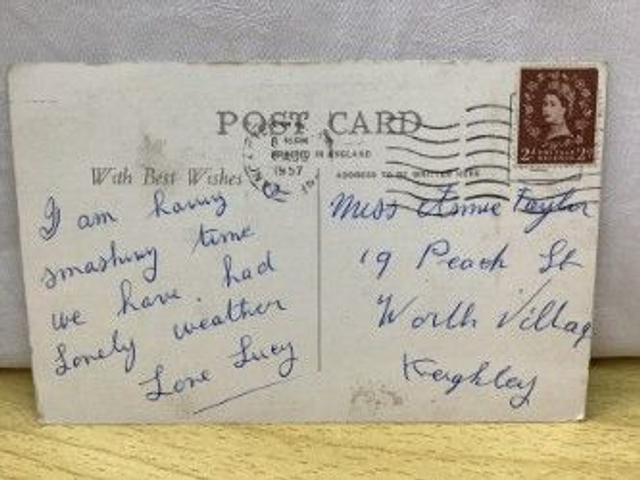 POST CARD
PRINTED IN ENGLAND
1957
With Best Wishes
ADDRESS TO BE WRITTEN HERE
I am having
smashing time
we have had
Lovely weather
Love Lucy
Miss Annie Taylor
19 Peach St
Worth Villag
Keighley
2d 2d